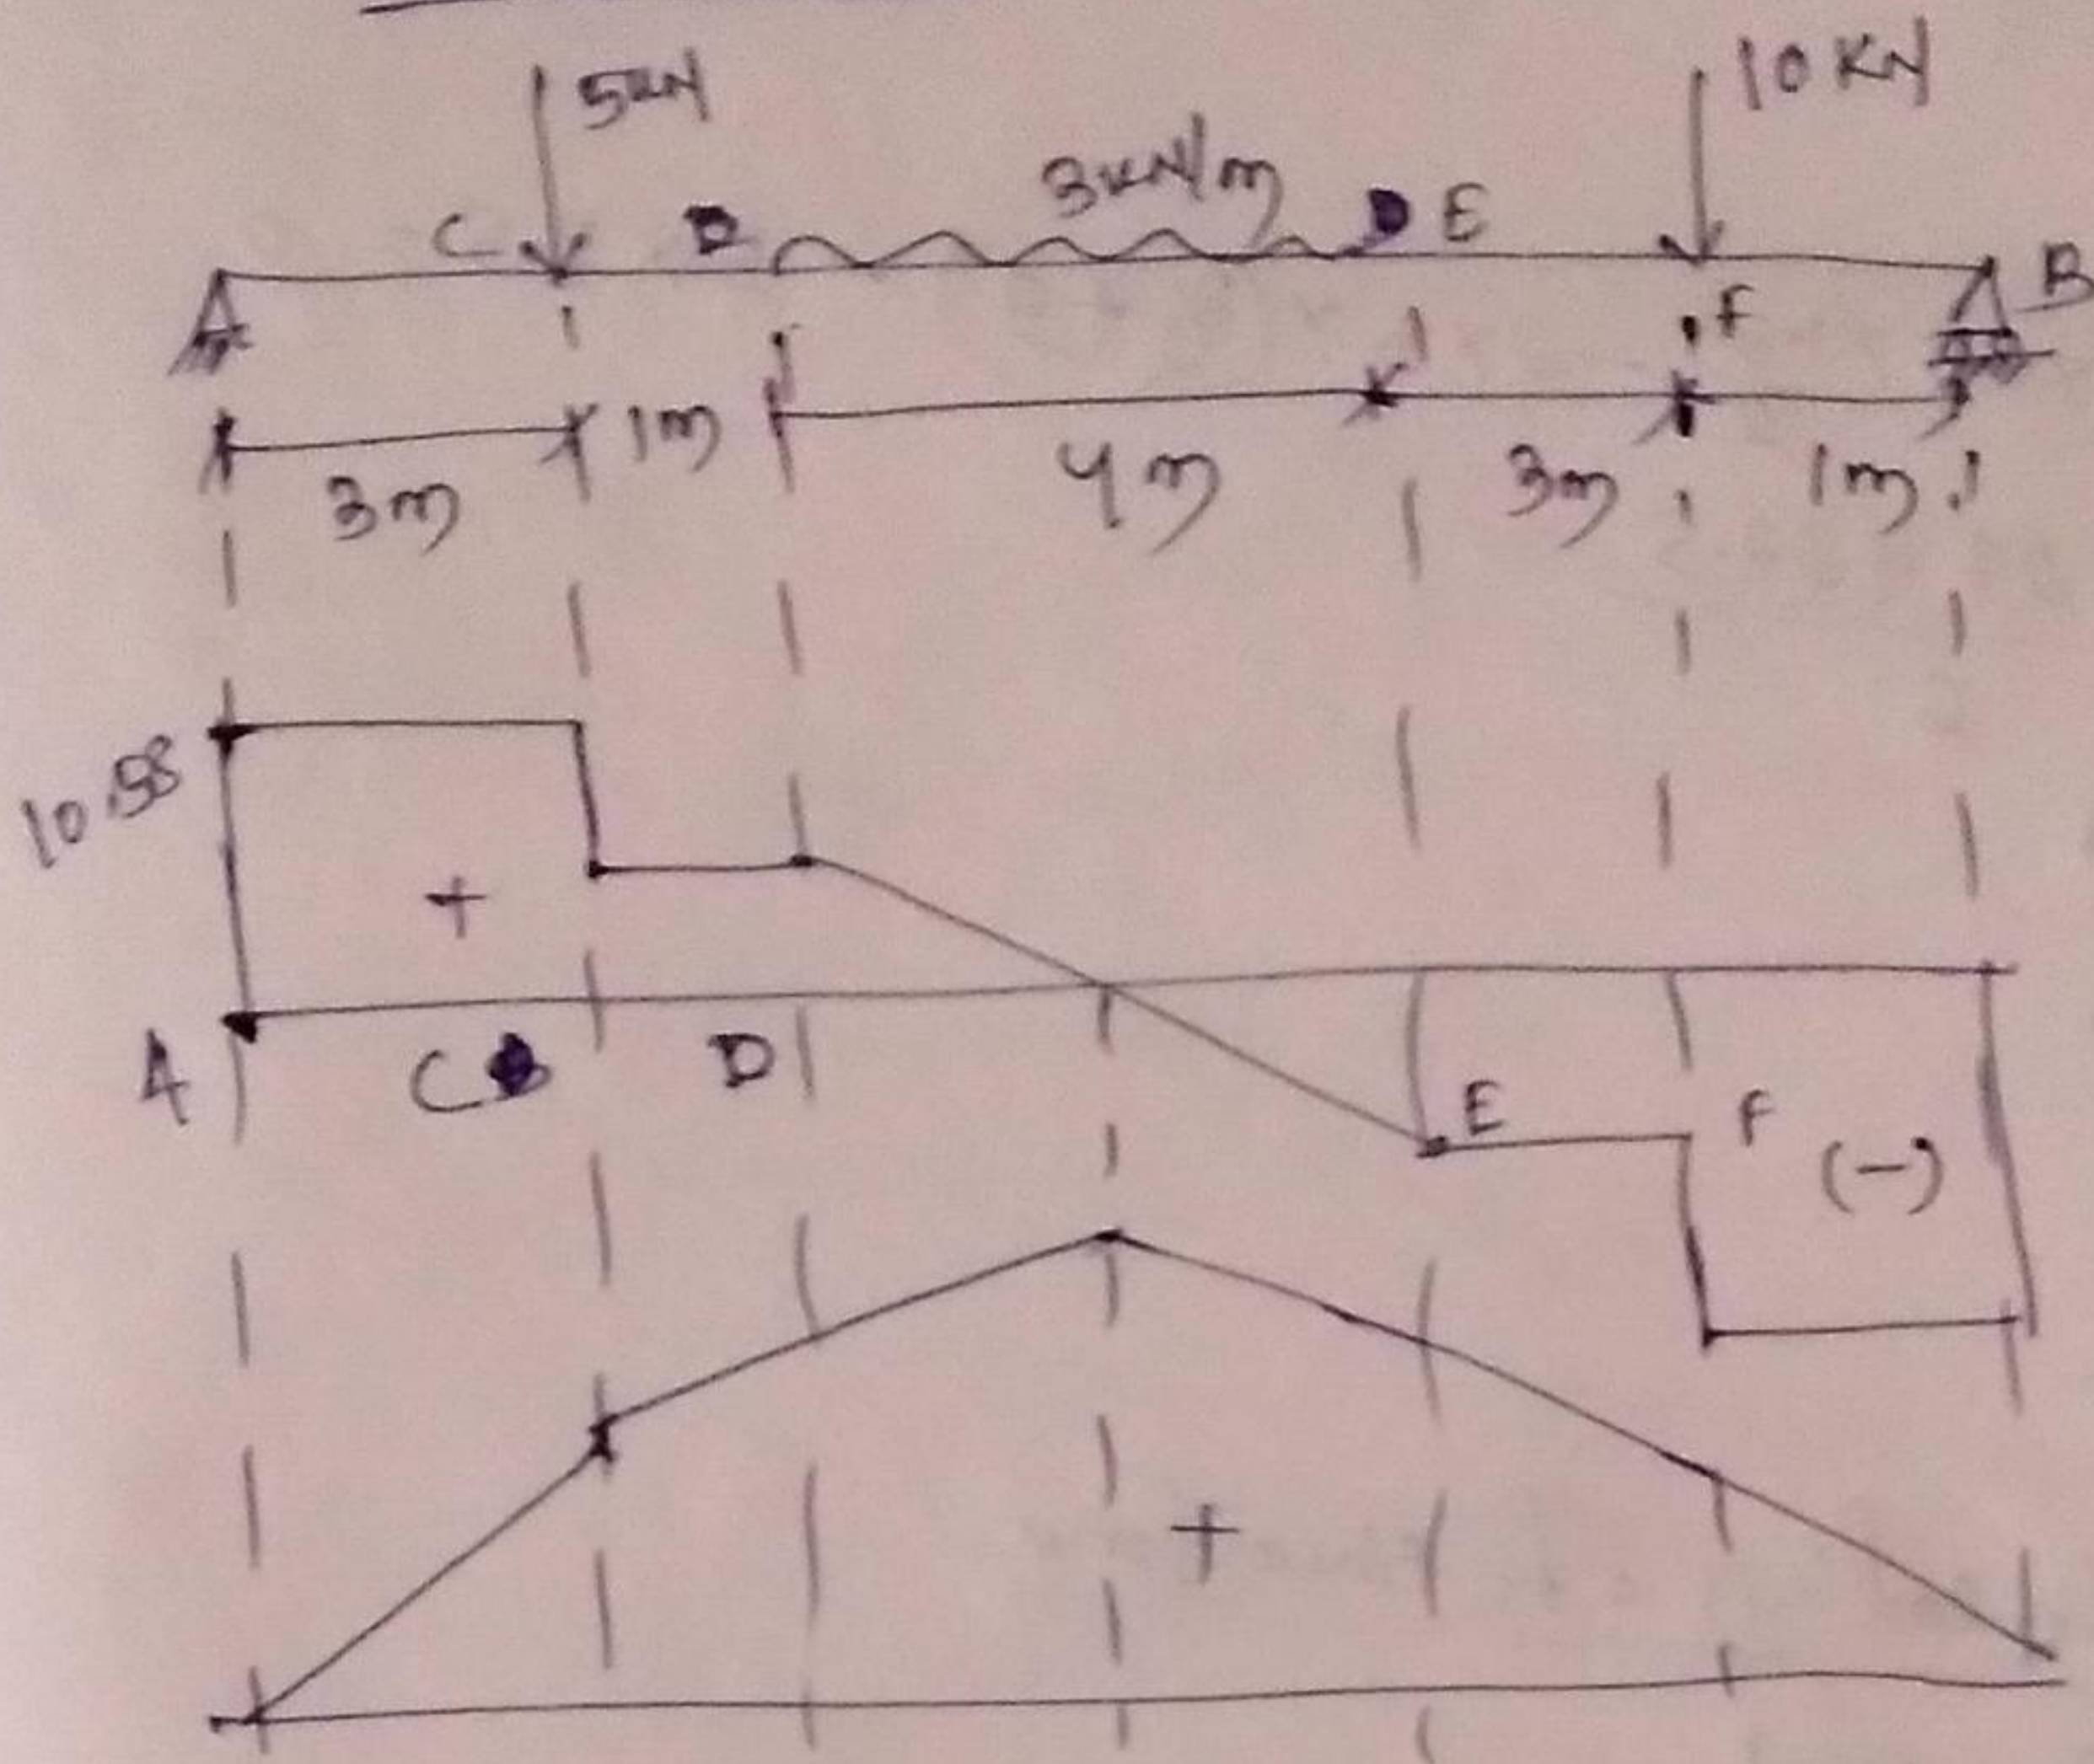 5kN 10 KN
3kN/m
C D E
F B
3m 1m 4m 3m 1m
10.58
+
A C D
E F (-)
+